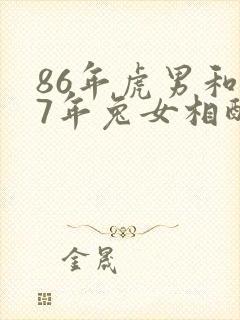 86年虎男和
7年兔女相
金晟